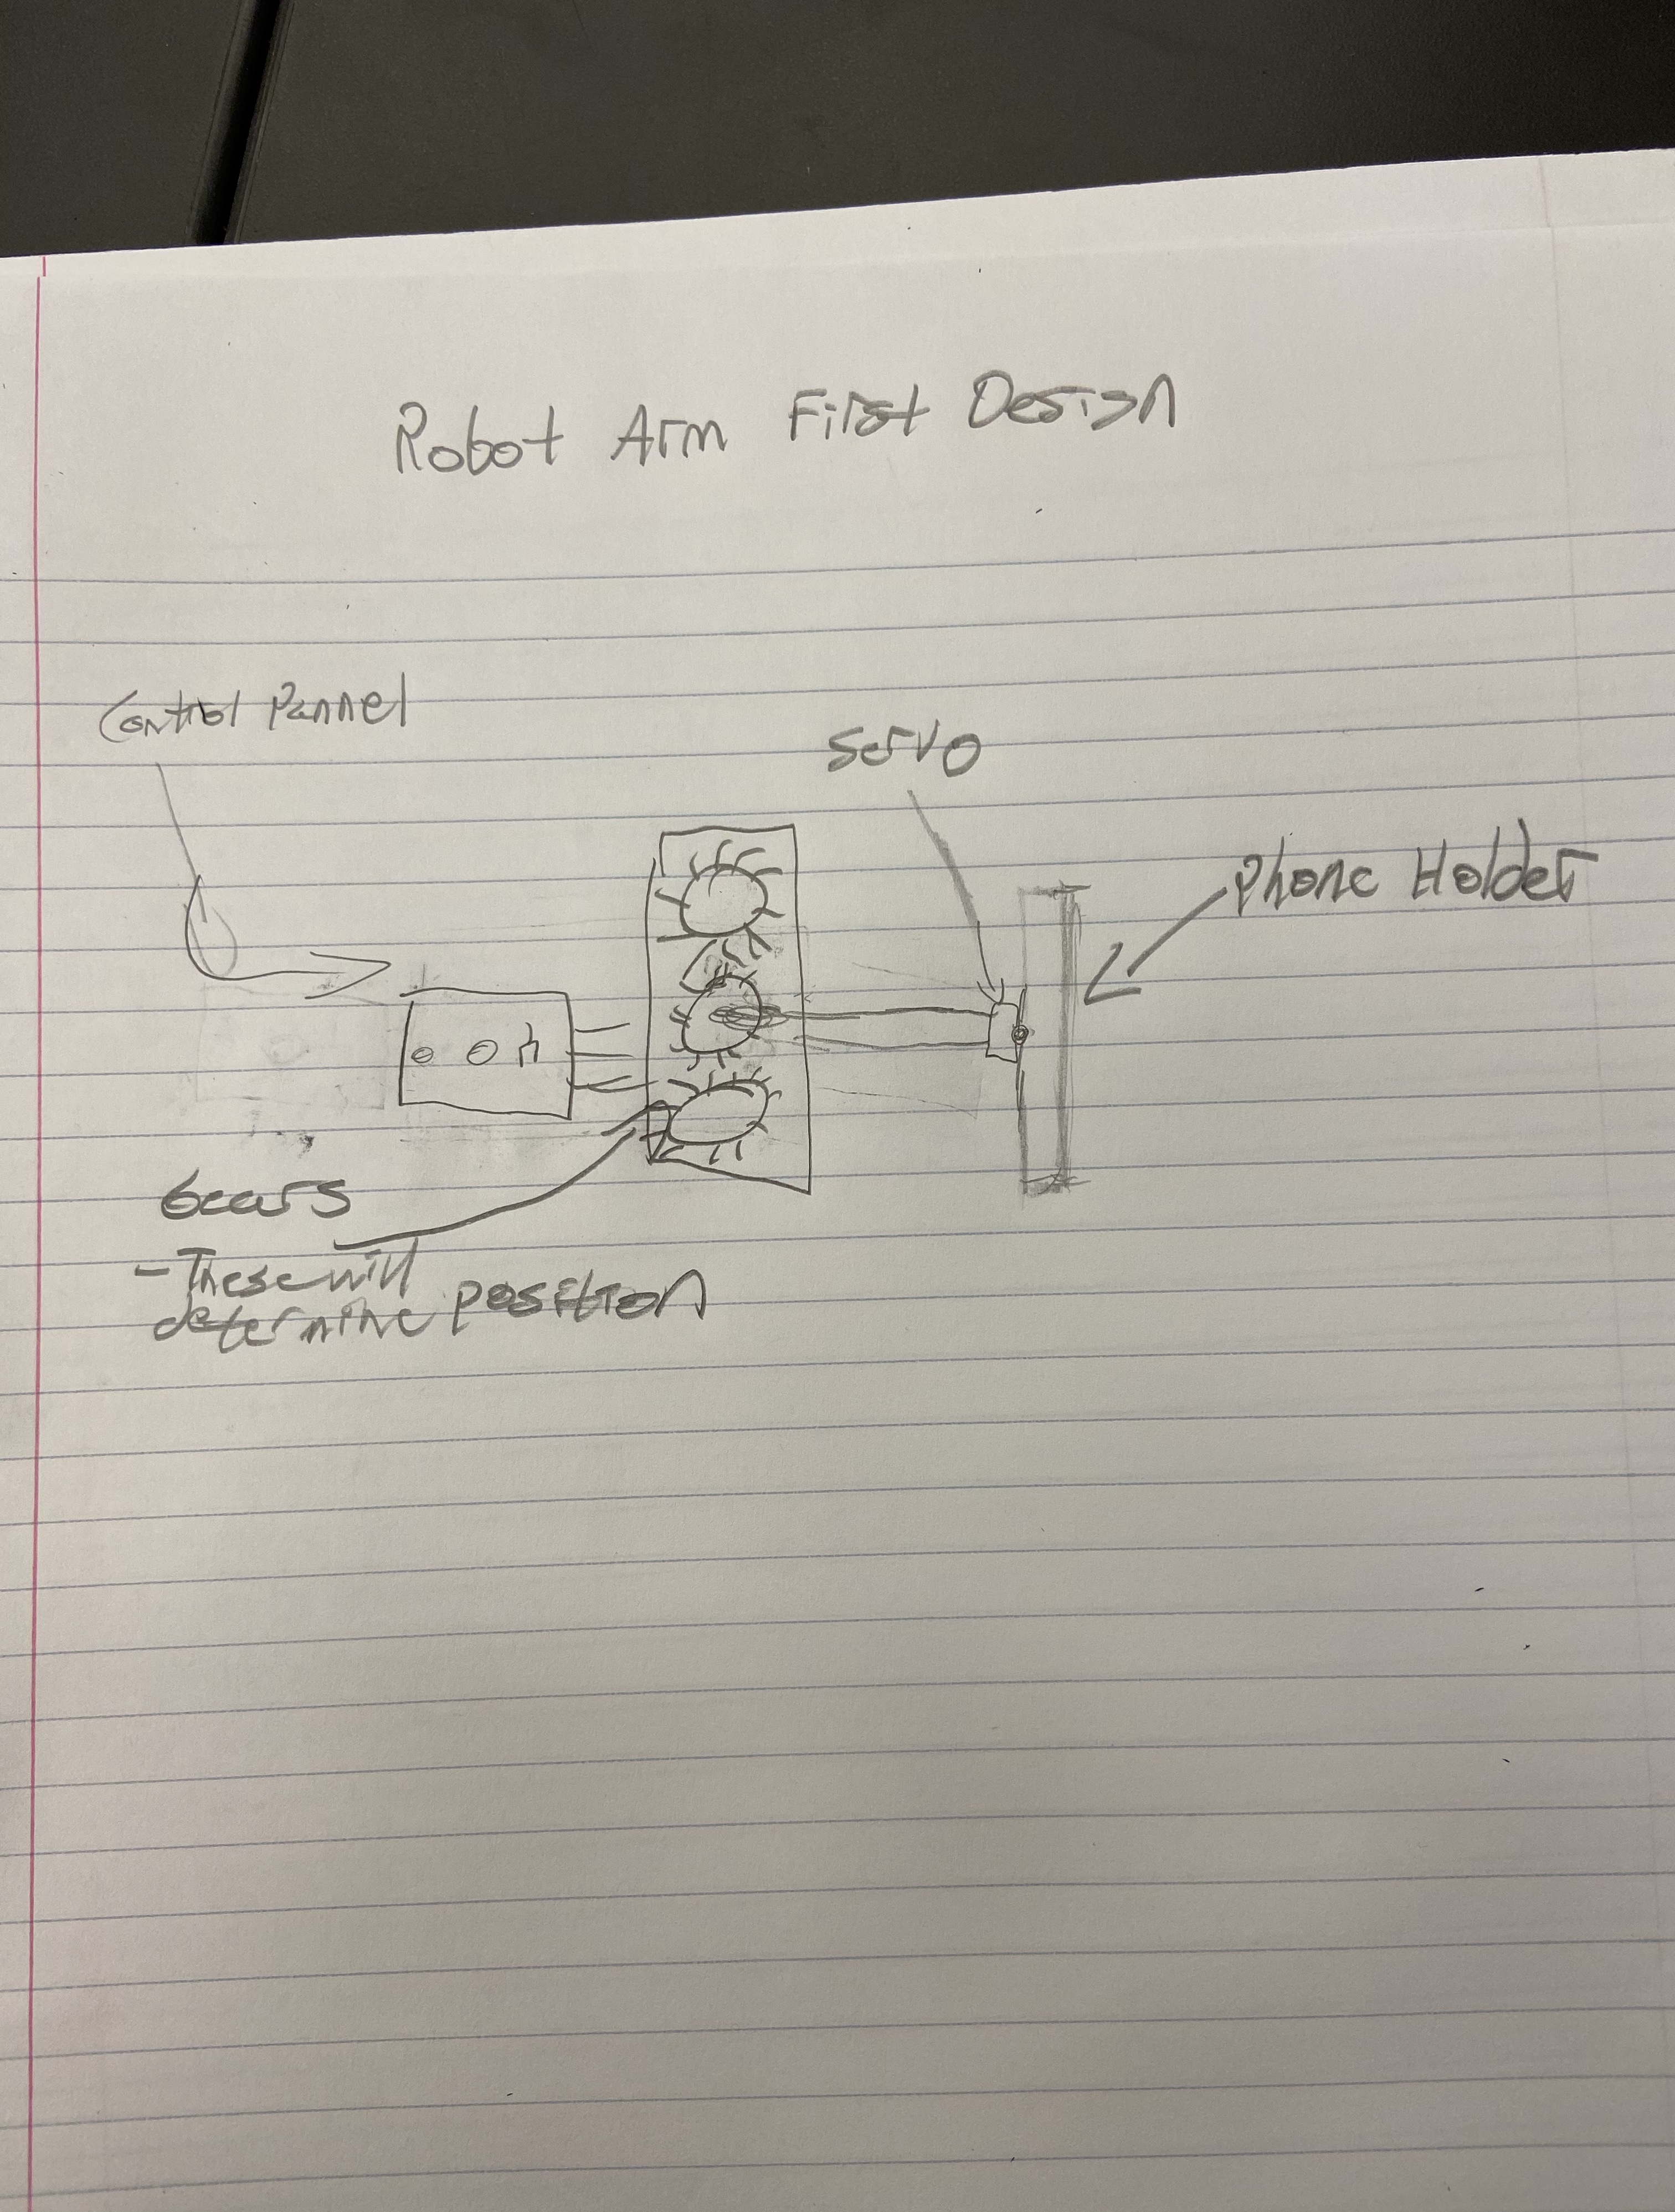 Robot Arm First Design
Control Pannel
servo
Phone Holder
Gears
- These will
determine position